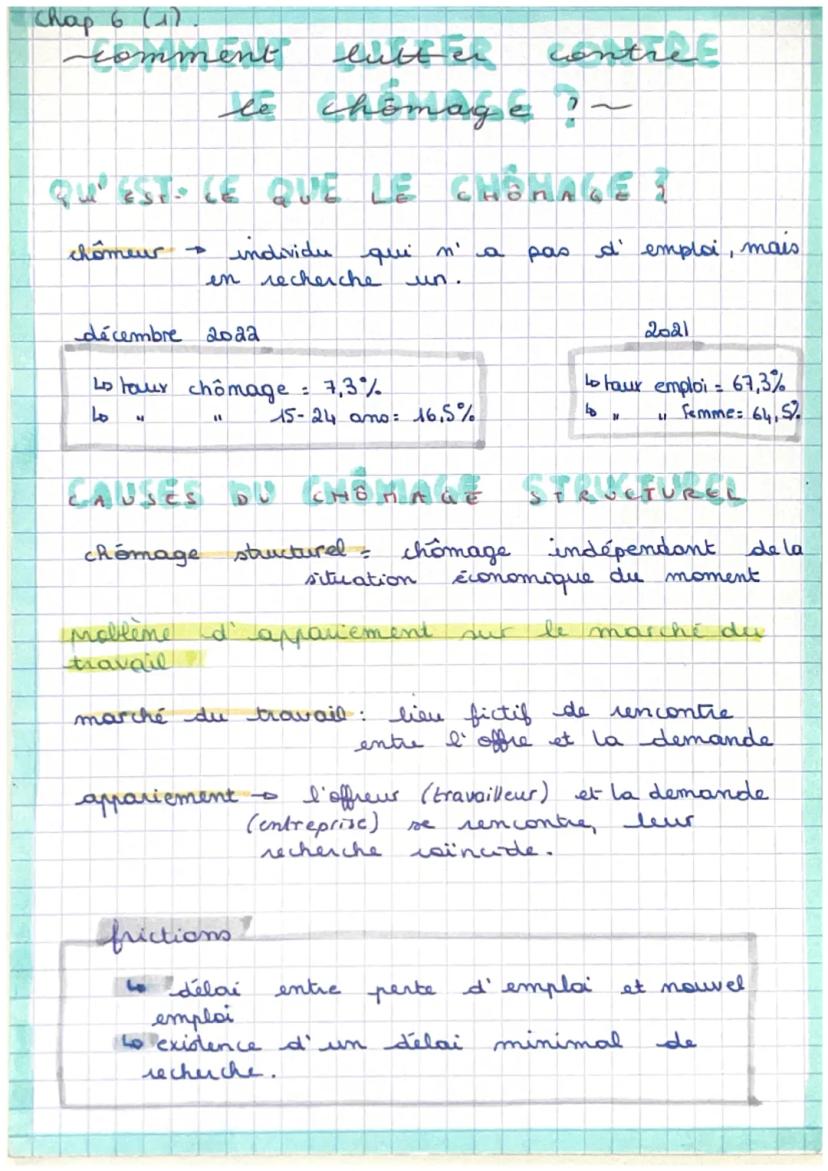 Chap 6 (1).
~comment lutter contre
le chômage ? ~
QU'EST-CE QUE LE CHÔMAGE ?
chômeur → individu qui n'a pas d'emploi, mais
en recherche un.
décembre 2022
2021
↳ taux chômage = 7,3%
↳ " " 15-24 ans = 16,5%
↳ taux emploi = 67,3%
↳ " " femme = 64,5%
CAUSES DU CHÔMAGE STRUCTUREL
chômage structurel = chômage indépendant de la
situation économique du moment
problème d'appariement sur le marché du
travail
marché du travail : lieu fictif de rencontre
entre l'offre et la demande
appariement → l'offreur (travailleur) et la demande
(entreprise) se rencontre, leur
recherche coïncide.
frictions
↳ délai entre perte d'emploi et nouvel
emploi
↳ existence d'un délai minimal de
recherche.